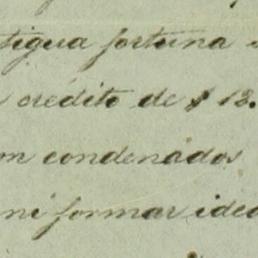 tigua fortuna
credito de $ 18.
condenados
ni formar idea